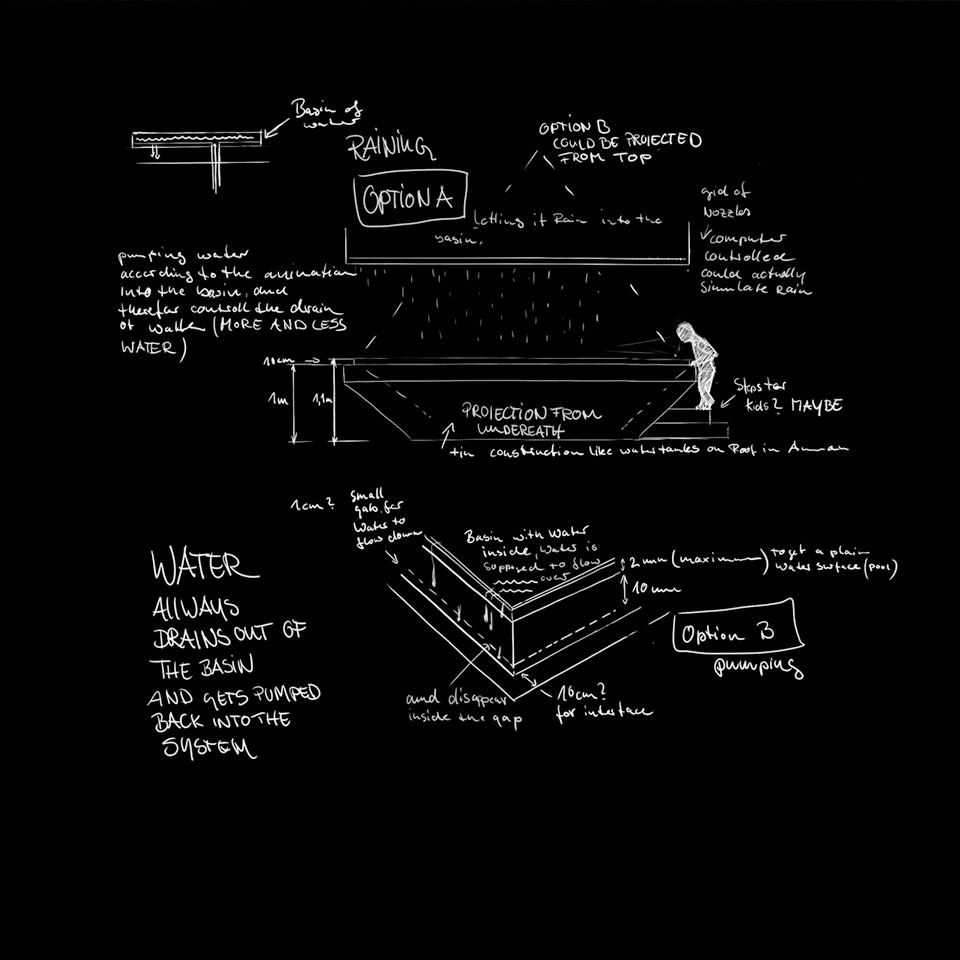 Basin of
water
RAINING
OPTION A
OPTION B
COULD BE PROJECTED
FROM TOP
letting it Rain into the
basin.
grid of
Nozzles
computer
controlled
could actually
simulate rain
pumping water
according to the animation
into the basin, and
therfor controll the drain
of water (MORE AND LESS
WATER)
10cm
1m
1,1m
PROJECTION FROM
UNDEREATH
Steps for
kids? MAYBE
tin construction like watertanks on Roof in Amman
1cm?
small
gab for
Water to
flow down
Basin with Water
inside, Water is
supposed to flow
over
2mm (maximum) to get a plain
water surface (pool)
10mm
Option B
pumping
WATER
AllWAYS
DRAINS OUT OF
THE BASIN
AND GETS PUMPED
BACK INTO THE
SYSTEM
and disappear
inside the gap
10cm?
for interface